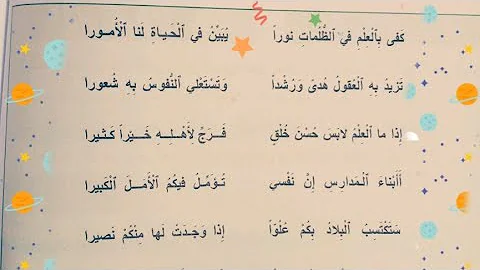 كَفى بِٱلْعِلْمِ فِي ٱلظُّلُماتِ نورا يُبَيِّنُ في ٱلْحَياةِ لَنا ٱلْأُمورا
تَزيدُ بِهِ ٱلْعُقولُ هُدىً وَرُشْداً وَتَسْتَعْلي ٱلنُّفوسُ بِهِ شُعورا
إِذا ما ٱلْعِلْمُ لابَسَ حُسْنَ خُلْقٍ فَرَجِّ لِأَهْلِهِ خَيْراً كَثيرا
أَأَبْناءَ ٱلْمَدارِسِ إِنَّ نَفْسي تُؤَمِّلُ فيكُمُ ٱلْأَمَلَ ٱلْكَبيرا
سَتَكْتَسِبُ ٱلْبِلادُ بِكُمْ عُلُوّاً إِذا وَجَدَتْ لَها مِنْكُمْ نَصيرا